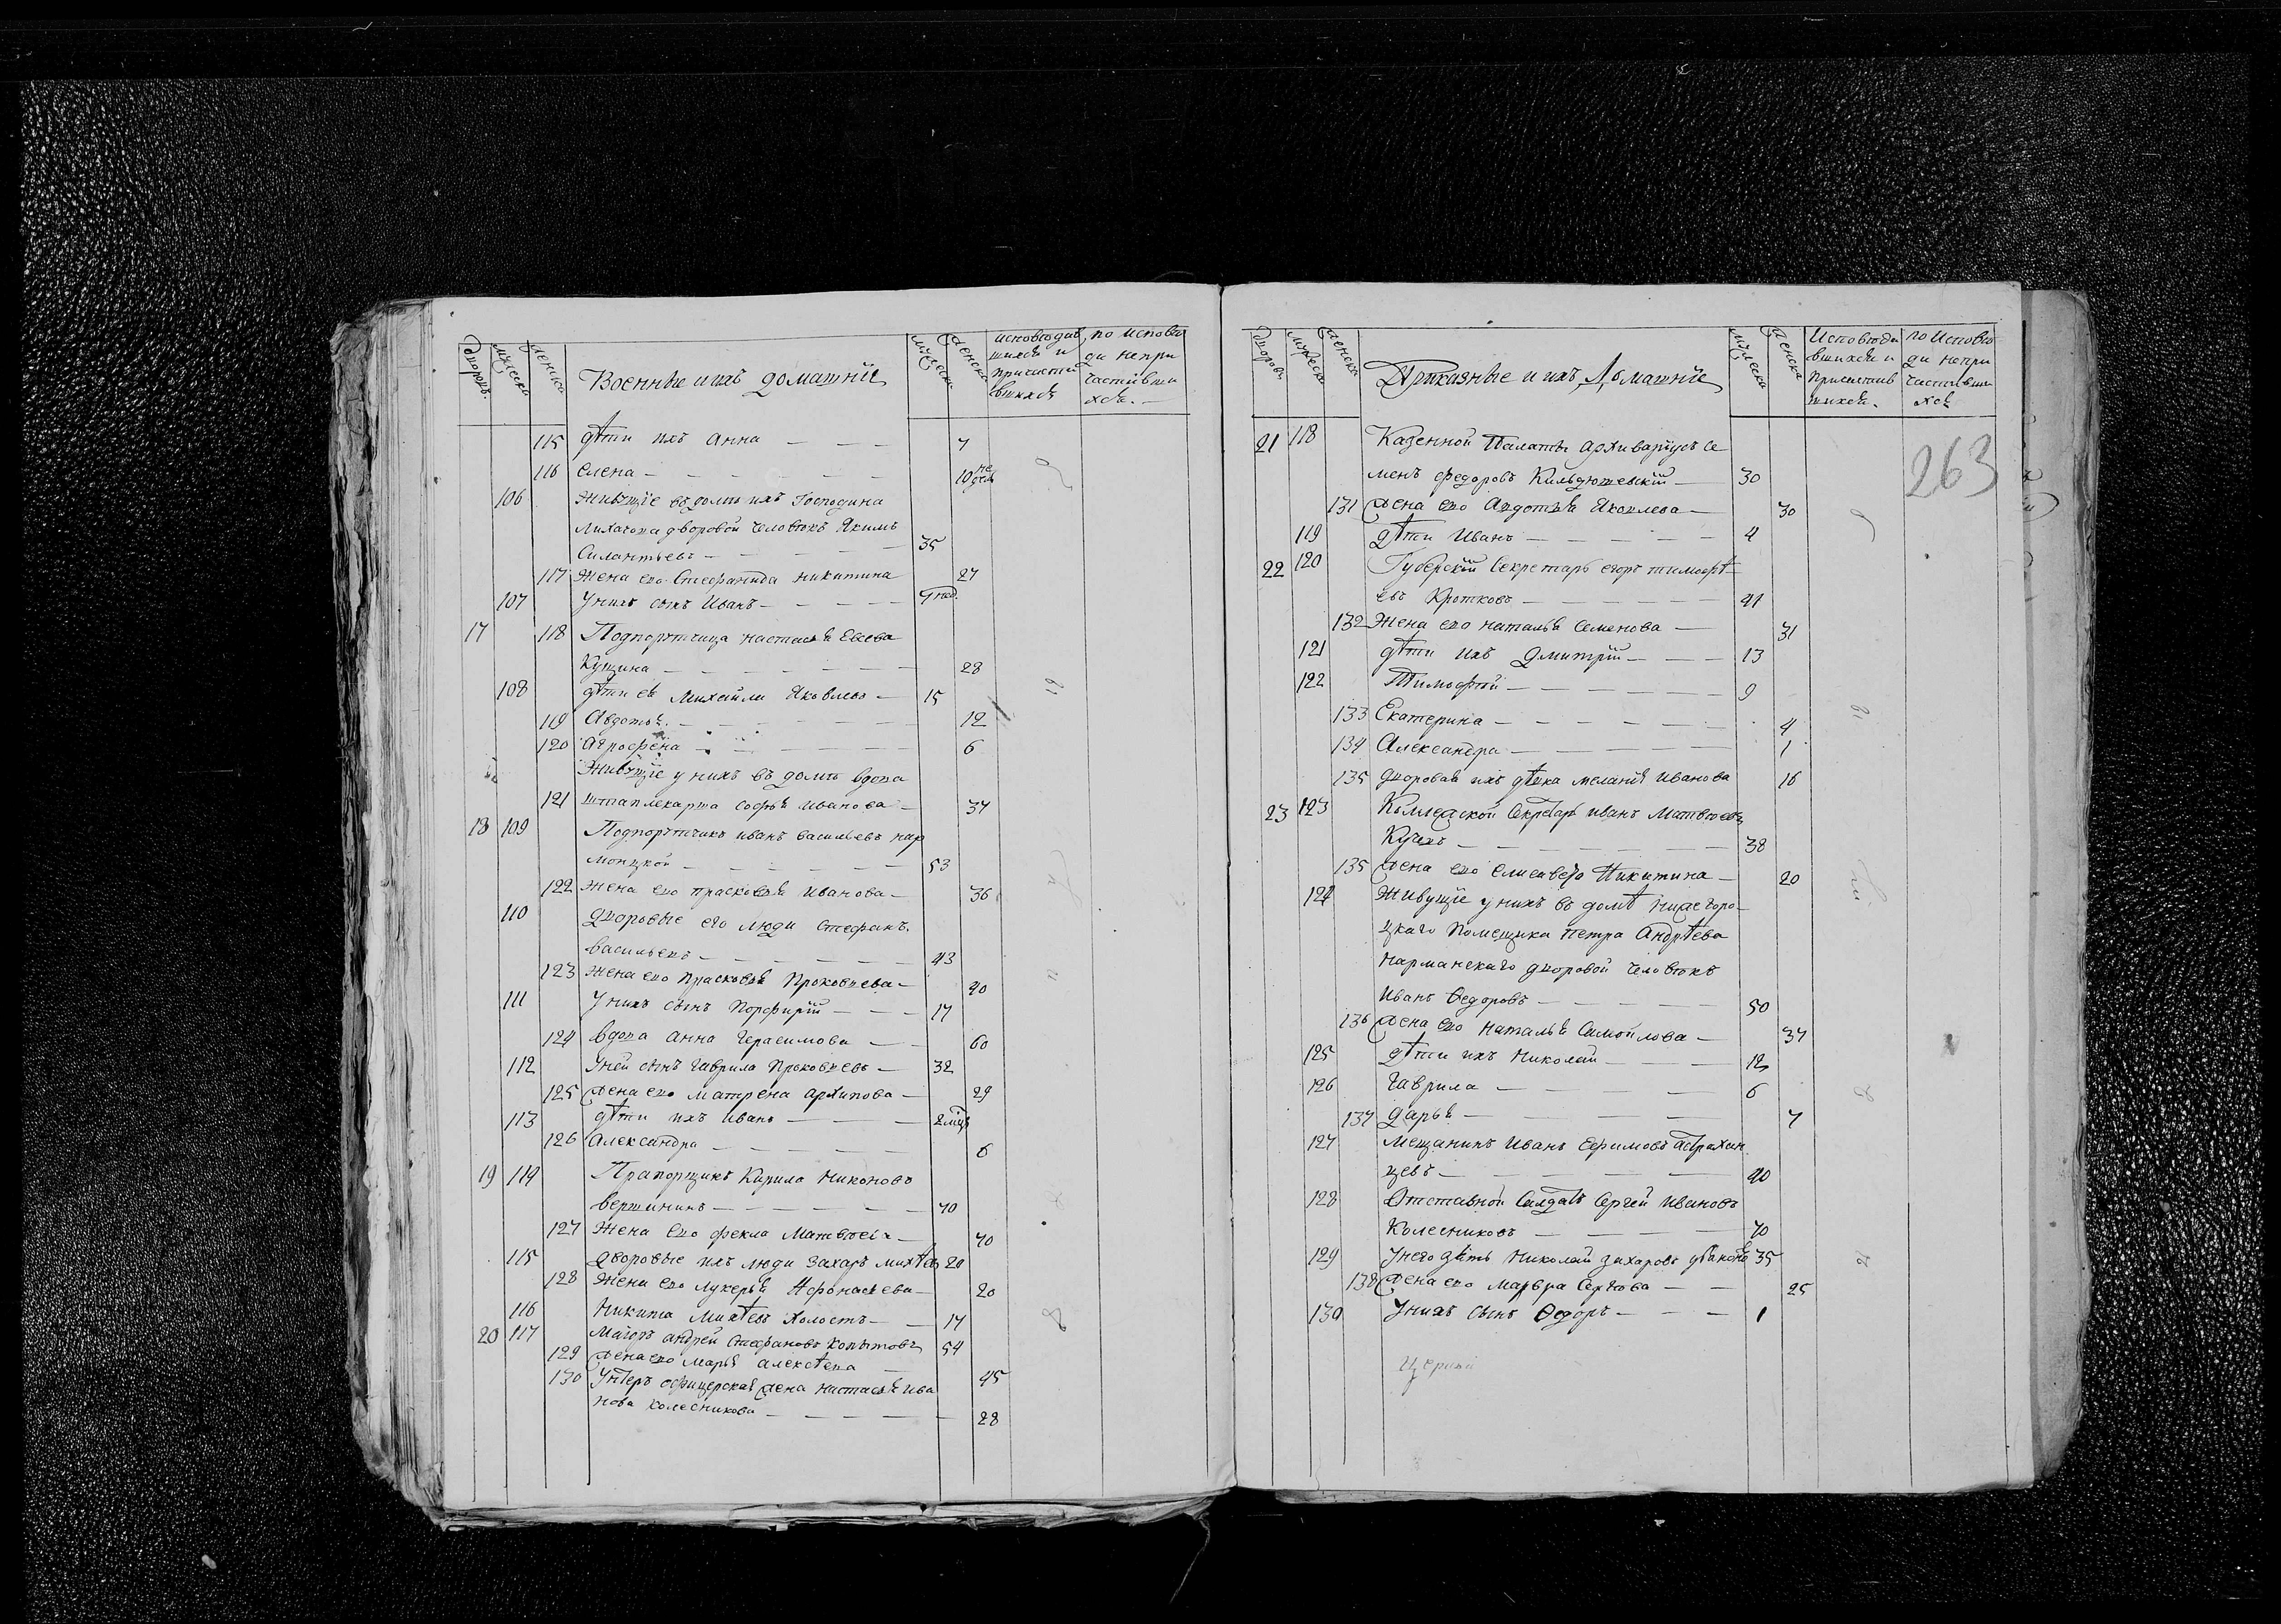 дворовъ мужеска женска Военные и ихъ домашніе мужеска женска исповѣдавшихся и причастившихся по исповѣди непричастившихся
115 дѣти ихъ Анна 7
116 Елена 10 недель
106 Живущіе въ домѣ ихъ Господина
Лихачова дворовой человѣкъ Якимъ
Силантьевъ 35
117 Жена его Стефанида Никитина 27
107 У нихъ сынъ Иванъ нед.
17 118 Подпорутчица Настасья Евсева
Кущина 28
108 дѣти ея Михайла Яковлевъ 15
119 Авдотья 12
120 Агрофена 6
Живущіе у нихъ въ домѣ вдова
121 штаплекарша Софья Иванова 37
18 109 Подпорутчикъ Иванъ Васильевъ Нар
моцкой 53
122 Жена его Прасковья Иванова 36
110 Дворовые его люди Стефанъ
Васильевъ 43
123 Жена его Прасковья Прокофьева 40
111 У нихъ сынъ Порфирій 17
124 Вдова Анна Герасимова 60
112 У ней сынъ Гаврила Прокофьевъ 32
125 Жена его Матрена Архипова 29
113 дѣти ихъ Иванъ 2 мцъ
126 Александра 6
19 114 Прапорщикъ Кирила Никоновъ
Вершининъ 70
127 Жена его Фекла Матвѣева 70
115 Дворовые ихъ люди Захаръ Михѣевъ 20
128 Жена его Лукерья Афонасьева 20
116 Никита Михѣевъ холостъ 17
20 117 Маіоръ Андрей Стефановъ Копытовъ 54
129 Жена его Марья Алексѣева 45
130 Унтеръ офицерская жена Настасья Ива
нова Колесникова 28
дворовъ мужеска женска Приказные и ихъ Домашніе мужеска женска Исповѣдавшихся и Причастившихся по Исповѣди непричастившихся
263
21 118 Казенной Палаты Архиваріусъ Се
менъ Федоровъ Кильдюшевскій 30
131 Жена его Авдотья Яковлева 30
119 Дѣти Иванъ 4
22 120 Губерскій Секретарь Егоръ Тимофѣ
евъ Кротковъ 41
132 Жена его Наталья Семенова 31
121 дѣти ихъ Дмитрій 13
122 Тимофѣй 9
133 Екатерина 4
134 Александра 1
135 Дворовая ихъ дѣвка Меланія Иванова 16
23 123 Коллежской Секретарь Иванъ Матвѣевъ
38
135 Жена его Елисавета Никитина 20
124 Живущіе у нихъ въ домѣ Нижегоро
цкаго Помещика Петра Андрѣева
Нарманскаго дворовой человѣкъ
Иванъ Ѳедоровъ 50
136 Жена его Наталья Самойлова 37
125 дѣти ихъ Николай 12
126 Гаврила 6
137 Дарья 7
127 Мещанинъ Иванъ Ефимовъ Астрахан
цевъ 40
128 Отставной Салдатъ Сергей Ивановъ
Колесниковъ 70
129 У него зять Николай Захаровъ 35
138 Жена его Марфа Сергѣева 25
130 У нихъ сынъ Ѳедоръ 1